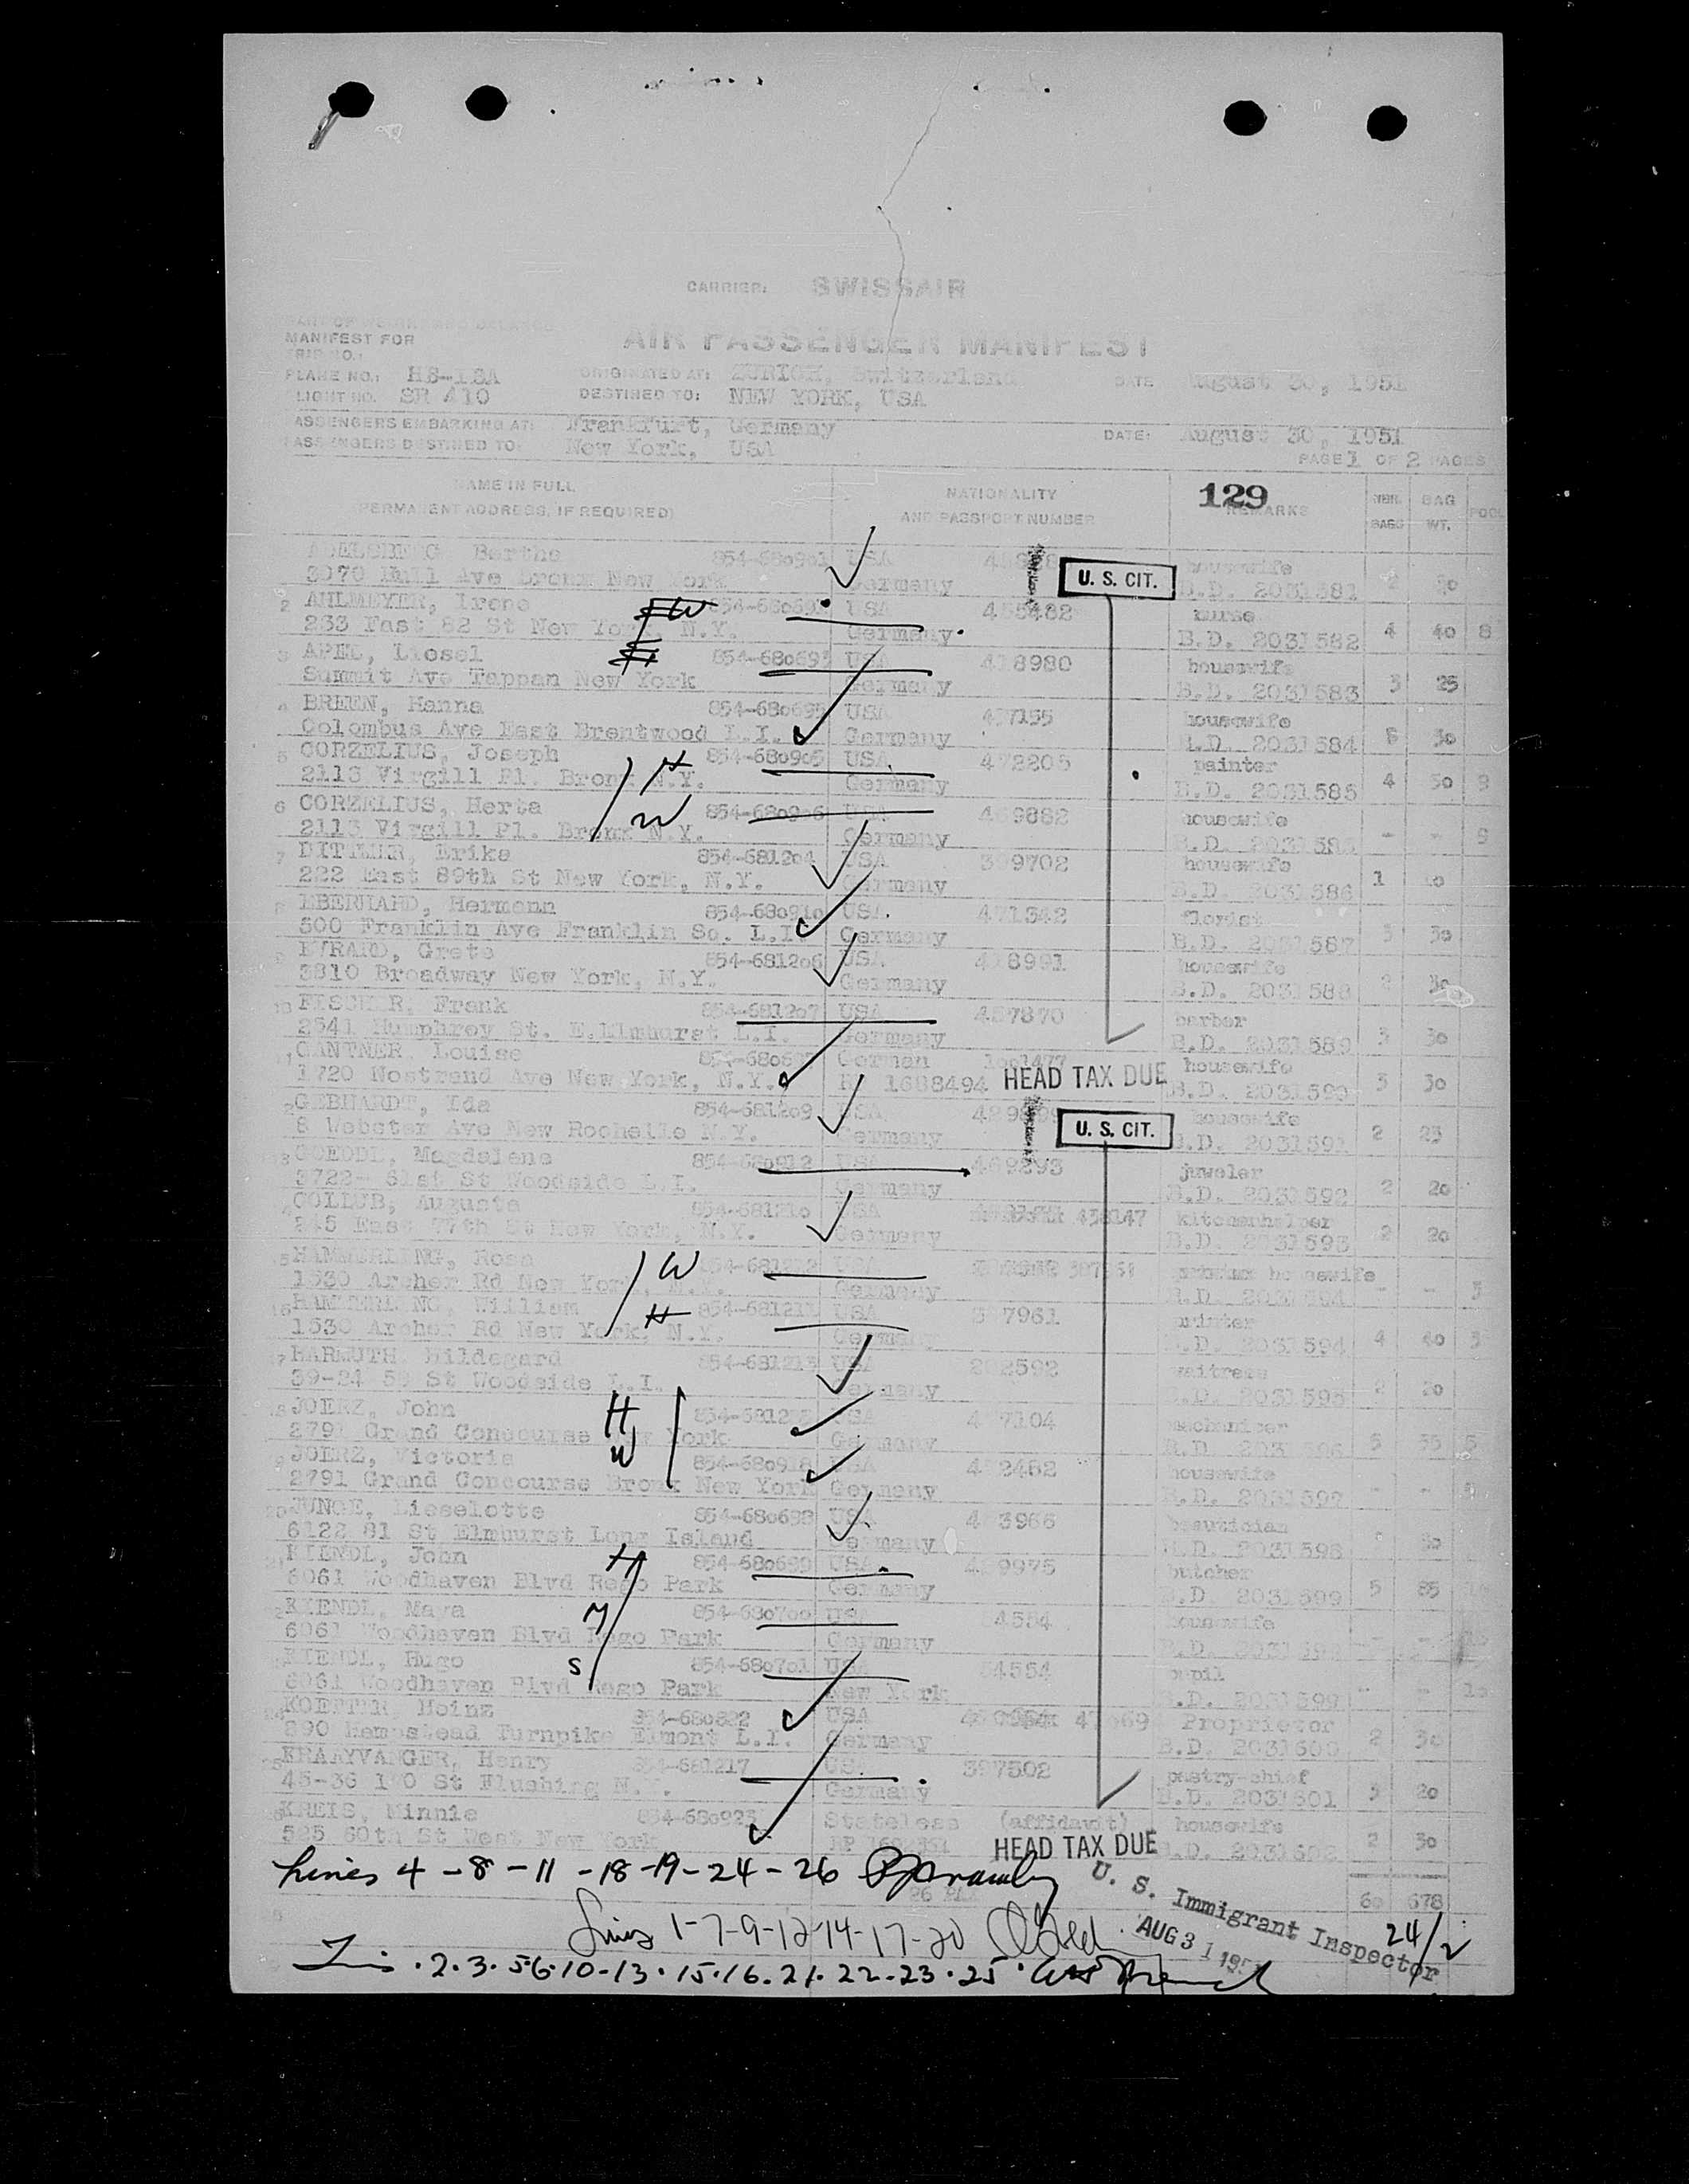 CARRIER: SWISSAIR
AIR PASSENGER MANIFEST
MANIFEST FOR
TRIP NO.:
PLANE NO.: HB-ISA ORIGINATED AT: ZURICH, Switzerland DATE August 30, 1951
FLIGHT NO. SR 410 DESTINED TO: NEW YORK, USA
PASSENGERS EMBARKING AT: Frankfurt, Germany DATE: August 30, 1951
PASSENGERS DESTINED TO: New York, USA
PAGE 1 OF 2 PAGES
NAME IN FULL NATIONALITY 129 NBR. BAG
(PERMANENT ADDRESS, IF REQUIRED) AND PASSPORT NUMBER REMARKS BAGG WT.
Berthe 854-680901 USA housewife
3070 Hull Ave Bronx New York Germany U. S. CIT. B.D. 2031581 2 30
2 AHLMEYER, Irene W USA 455482 nurse
233 East 82 St New York, N.Y. Germany B.D. 2031582 4 40 8
3 APEL, Liesel 854-680693 USA 418980 housewife
Summit Ave Tappan New York Germany B.D. 2031583 3 25
4 BREEN, Hanna 854-680695 USA 457155 housewife
Colombus Ave East Brentwood L.I. Germany B.D. 2031584 30
5 CORZELIUS, Joseph H 854-680905 USA 472205 painter
2113 Virgill Pl. Bronx N.Y. Germany B.D. 2031585 4 50 9
6 CORZELIUS, Herta W 854-680906 USA 469882 housewife
2113 Virgill Pl. Bronx N.Y. Germany B.D. 2031585 - - 9
7 DITTMER, Erika 854-681204 USA 399702 housewife
222 East 89th St New York, N.Y. Germany B.D. 2031586 1 10
8 EBERHARD, Hermann 854-680910 USA 471342 florist
500 Franklin Ave Franklin Sq. L.I. Germany B.D. 2031587 3 30
9 EVRARD, Grete 854-681206 USA 418991 housewife
3810 Broadway New York, N.Y. Germany B.D. 2031588 2 30
10 FISCHER, Frank 854-681207 USA 457870 barber
2541 Humphrey St. E.Elmhurst L.I. Germany B.D. 2031589 3 30
11 GANTNER Louise German 1001477 housewife
1720 Nostrand Ave New York, N.Y. 1688494 HEAD TAX DUE B.D. 2031590 3 30
GEBHARDT, Ida 854-681209 USA housewife
8 Webster Ave New Rochelle N.Y. Germany U. S. CIT. B.D. 2031591 2 23
13 GOEDDL, Magdalene 854-680912 USA 469293 juweler
3722- 61st St Woodside L.I. Germany B.D. 2031592 2 20
GOLLUB, Augusta 854-681210 USA 438147 kitchenhelper
245 East 77th St New York, N.Y. Germany B.D. 2031593 2 20
HAMMERLING, Rosa W 854-681212 USA housewife
1530 Archer Rd New York, N.Y. Germany B.D. 2031594 - -
16 HAMMERLING, William H 854-681211 USA 397961 printer
1530 Archer Rd New York, N.Y. Germany B.D. 2031594 4 40
17 HARMUTH Hildegard 854-681213 USA 202592 waitress
39-24 59 St Woodside L.I. Germany B.D. 2031595 2 20
18 JOERZ, John H USA 457104
2791 Grand Concourse New York Germany 5 55 5
JOERZ, Victoria W 854-680918 USA housewife
2791 Grand Concourse Bronx New York Germany - -
JUNGE, Lieselotte 854-680698 USA 453966 beautician
6122 81 St Elmhurst Long Island Germany B.D. 2031598 30
KIENDL, John H 854-680699 USA 459975 butcher
6061 Woodhaven Blvd Rego Park Germany B.D. 2031599 5 85
KIENDL, Maya 854-680700 USA housewife
6061 Woodhaven Blvd Rego Park Germany
KIENDL, Hugo S 854-680701 USA pupil
6061 Woodhaven Blvd Rego Park New York B.D. 2031599 - -
KOETTER, Heinz 854-680822 USA Proprietor
890 Hempstead Turnpike Elmont L.I. Germany B.D. 2031600 2 30
25 KRAAYVANGER, Henry 854-681217 397502 pastry-chief
45-36 170 St Flushing N.Y. Germany B.D. 2031601 3 20
KREIS, Minnie 854-680923 Stateless (affidavit) housewife
525 60th St West New York HEAD TAX DUE B.D. 2031602 2 30
Lines 4 - 8 - 11 - 18 - 19 - 24 - 26
26 PAX 60 678
U. S. Immigrant Inspector
Lines 1-7-9-12-14-17-20 AUG 31 24/2
2. 3. 5-6-10-13. 15.16. 21. 22-23. 25.